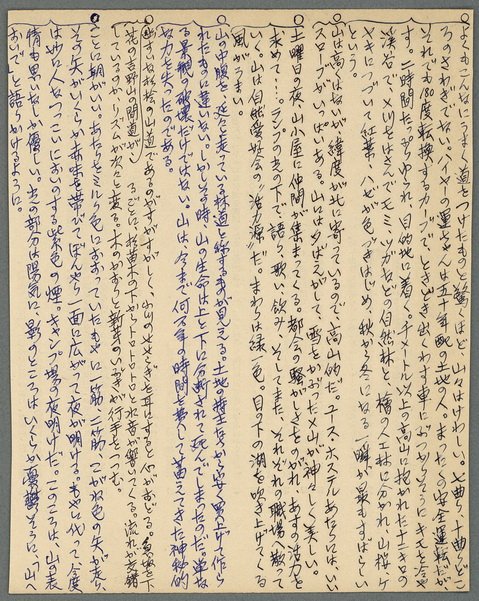 よくもこんなにうまく道をつけたものと驚くほど、山々はけわしい。七曲り十曲りどこ
ろのさわぎでない。ハイヤーの運ちゃんは五十年配の土地の人。まったくの安全運転だが、
それでも180度転換するカーブで、ときどき出くわす車に、ぶつかりそうにキモを冷や
す。二時間たっぷりゆられ、目的地に着く。千メートル以上の高山に抱かれた十二キロの
渓谷で、〆川をはさんでモミ、ツガなどの自然林と、檜の人工林に分かれ、山桜、ケ
ヤキにつづいて紅葉、ハゼが色づきはじめ、秋から冬になる一瞬が最もすばらしい
という。
山は高くはないが、緯度が北に寄っているので、高山的だ。ユース・ホステルあたりには、いい
スロープがいっぱいある。山に夕ばえがして、雪をかぶった〆山が神々しく美しい。
土曜日の夜、山小屋に仲間が集まってくる。都会の騒がしさをのがれ、あすの活力を
求めて…。ランプの光の下で、語り、歌い、飲み、そしてまた、それぞれの職場へ散って
いく。山は自然愛好会の“活力源”だ。まわりは緑一色。目の下の湖を吹き上げてくる
風がうまい。
山の中腹を、延々と走っている林道と称するものが見える。土地の持主から安く買上げて作ら
れたものに違いない。しかしその時、山の生命は上と下に分断されて死んでしまったのだ。単な
る景観の破壊だけではない。山は、今まで何万年の時間を費して蓄えてきた神秘的
な力を失ったのである。
の山道であるのがすがすがしく、小川のせせらぎを耳にすると心がおどる。
花の吉野山の間道が
ていくのか、リズムが次々と変る。木のかおりと新芽のいぶきが行手をつつむ。
ことに朝がいい。あたりをミルク色におおっていたもやに一筋、二筋、こがね色の矢が走り、
その矢がいくらか赤味を帯びて、ぼんやり一面に広がって夜が明ける。もやに代って、今度
は妙に人なつっこいにおいのする紫色の煙。キャンプ場の夜明けだ。このころは、山の表
情も思いなしか優しい。光の部分は陽気に、影のところはいくらか憂鬱そうに、「山へ
おいで」と語りかけるように。